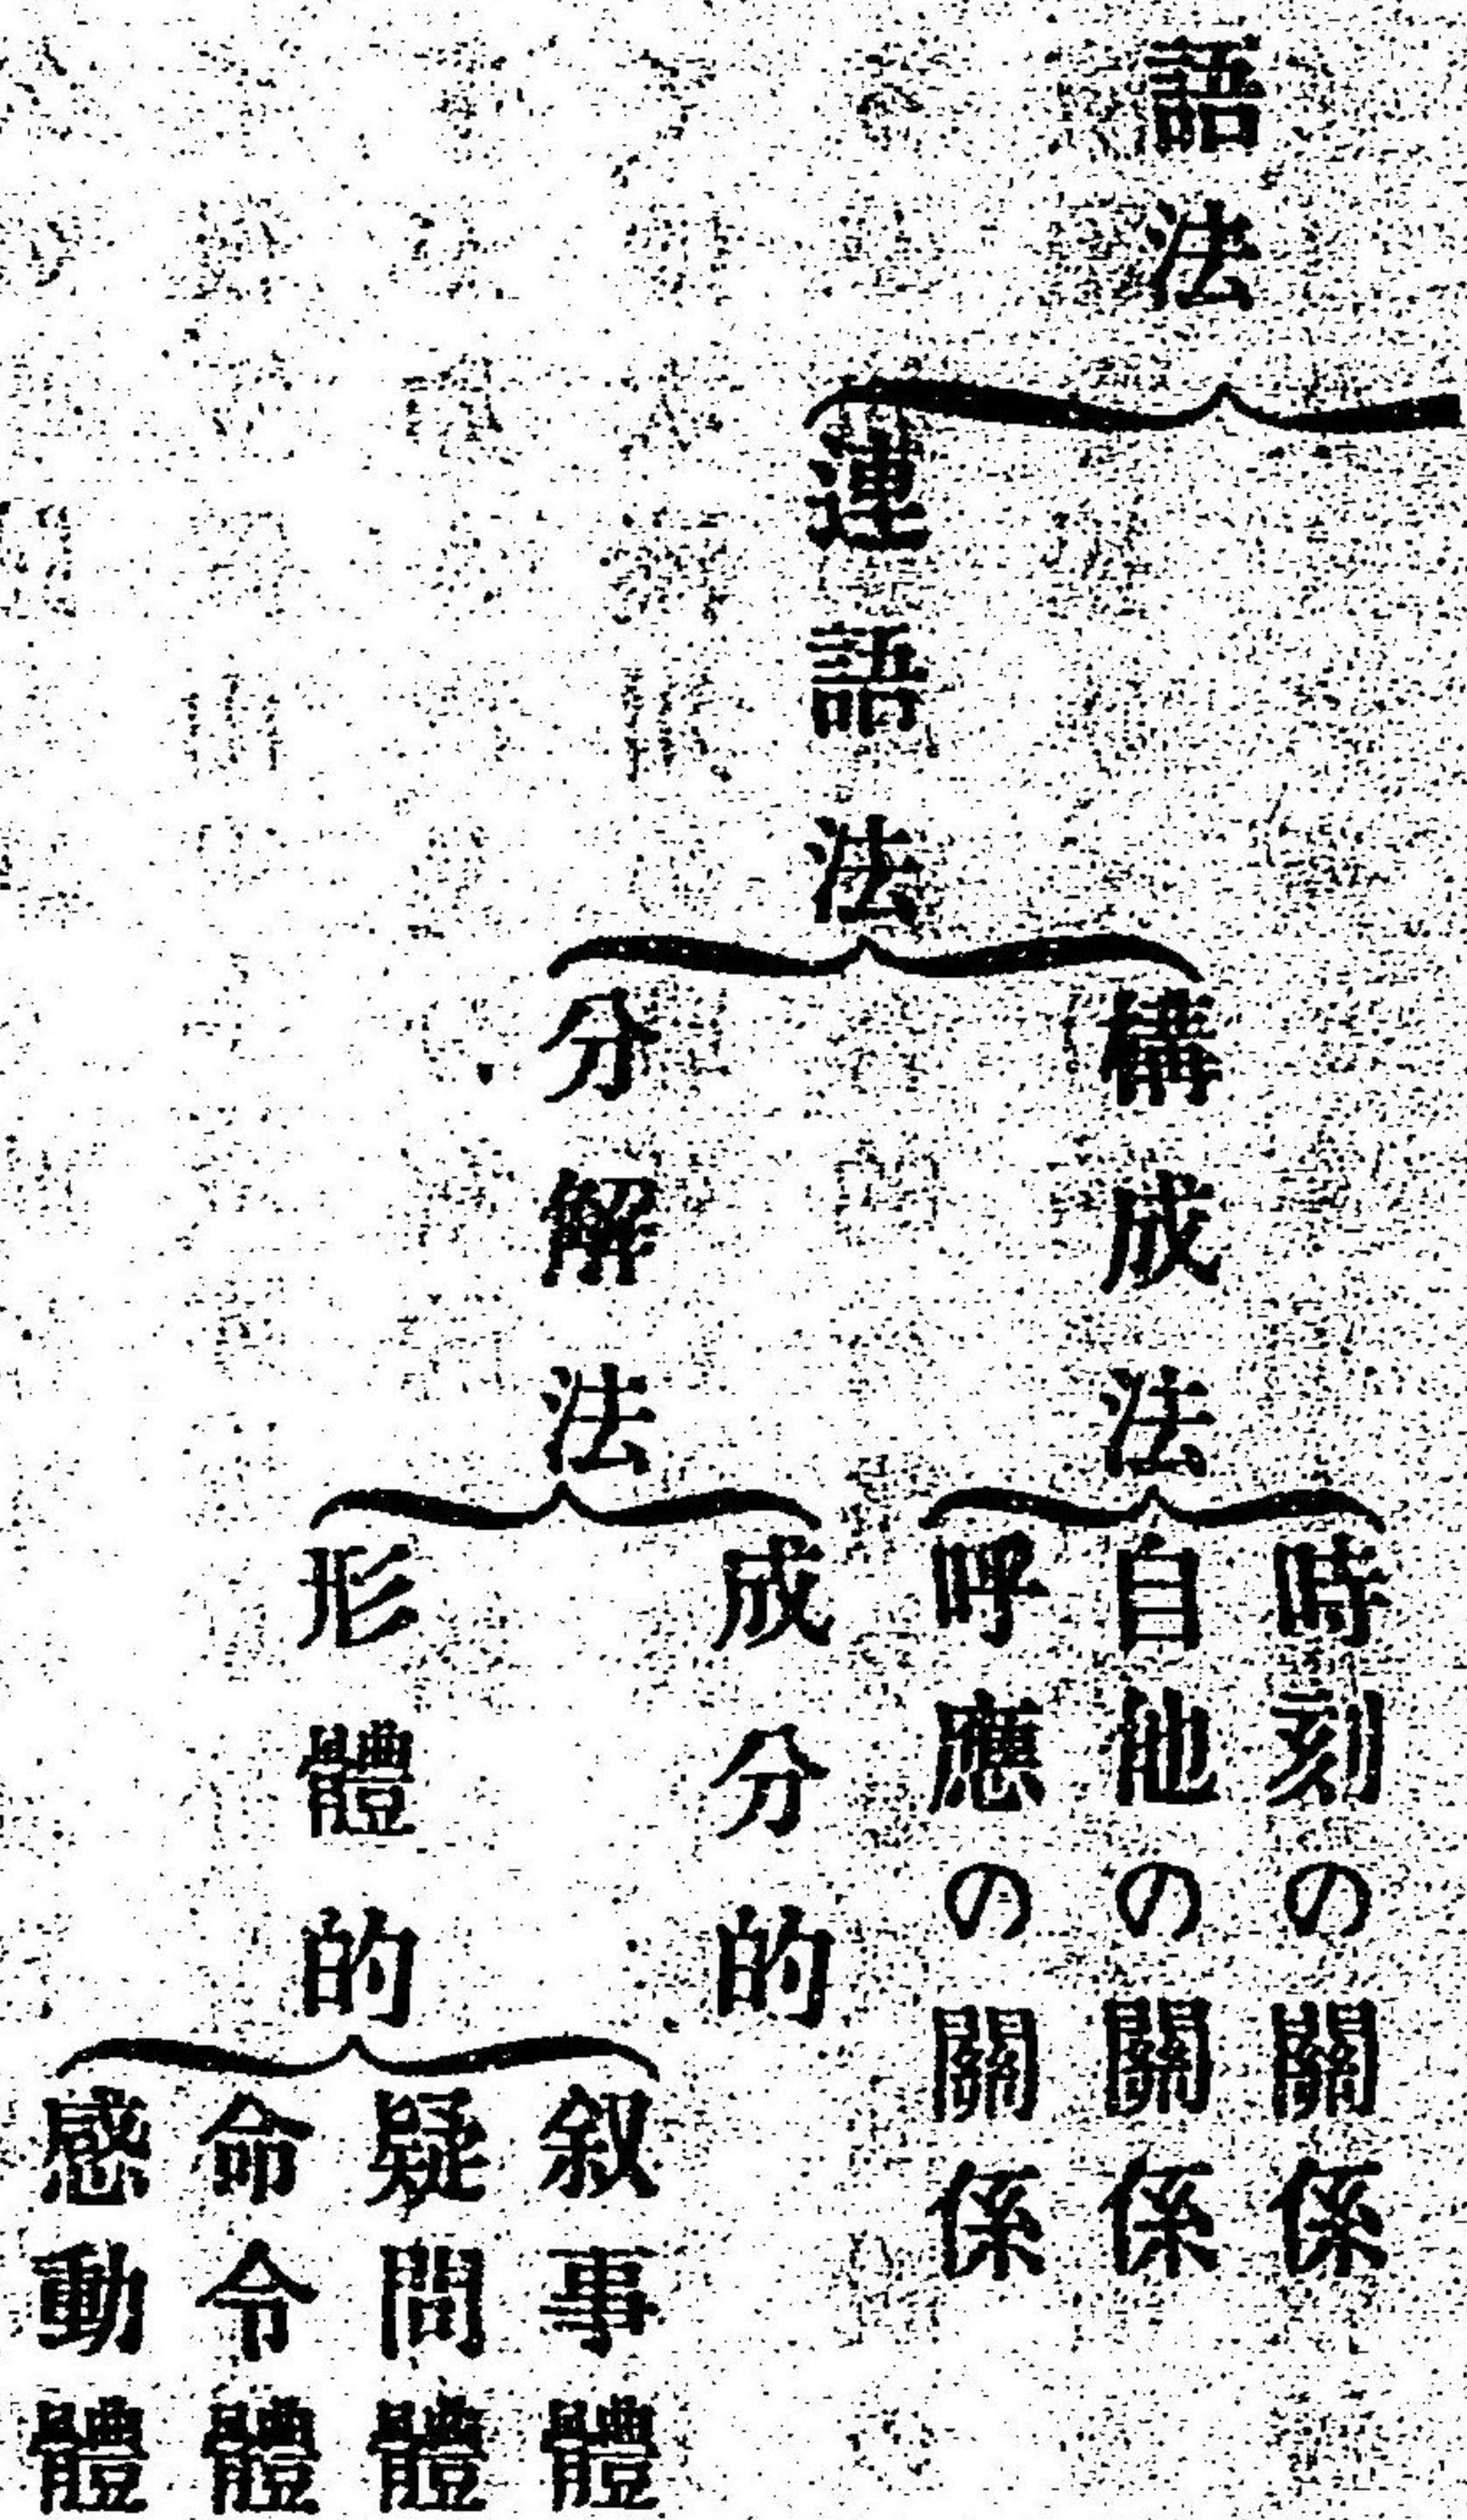 語法
連語法
構成法
時刻の關係
自他の關係
呼應の關係
分解法
成分的
形體的
叙事體
疑問體
命令體
感動體